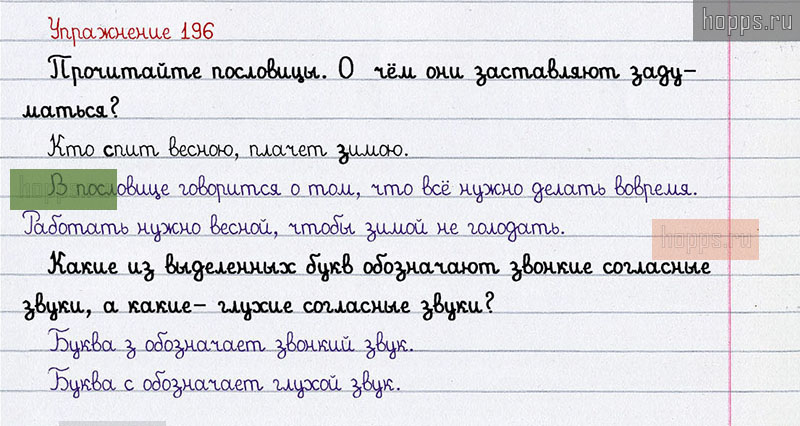 hopps.ru
Упражнение 196
Прочитайте пословицы. О чём они заставляют заду-
маться?
Кто спит весною, плачет зимою.
В пословице говорится о том, что всё нужно делать вовремя.
Работать нужно весной, чтобы зимой не голодать.
hopps.ru
Какие из выделенных букв обозначают звонкие согласные
звуки, а какие- глухие согласные звуки?
Буква з обозначает звонкий звук.
Буква с обозначает глухой звук.